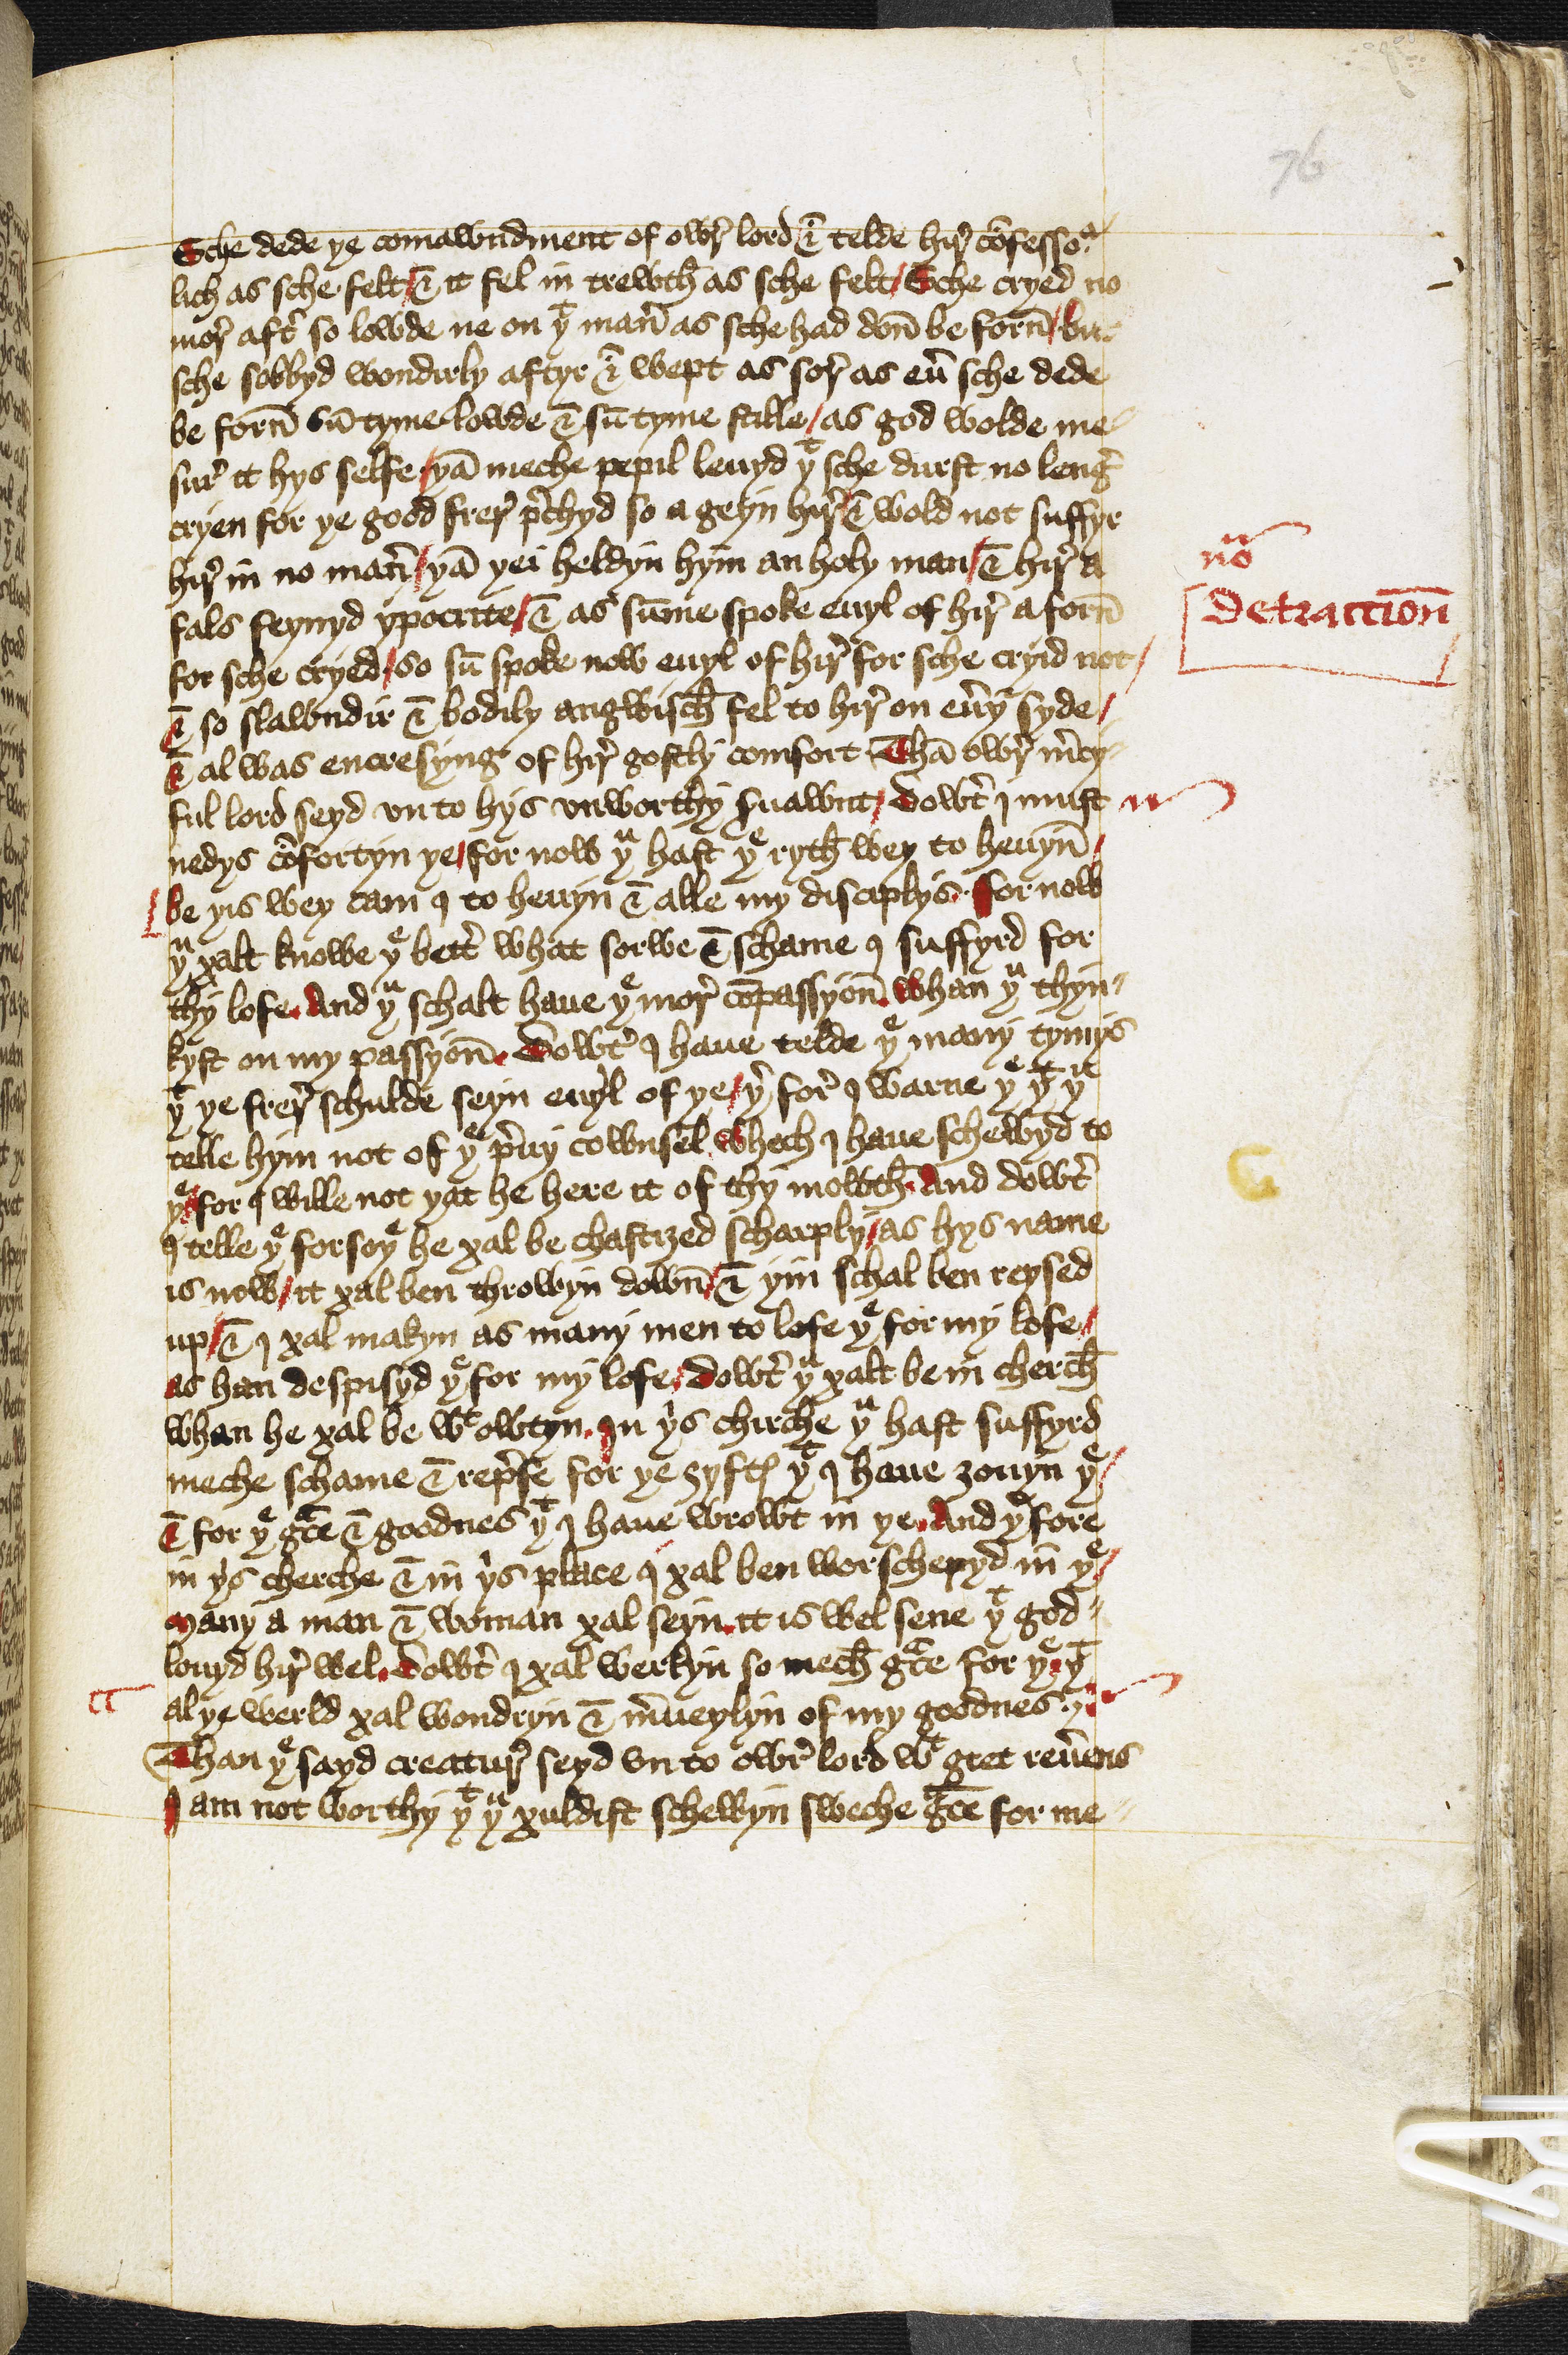 76
Sche dede ye comawndment of owr̛ lord & telde hir̛ cōfessoᵃ
lich as sche felt / & it fel in trewth̄ as sche felt / Sche cryed no
mor̛ aft̛ so lowde ne on yᵗ man̛ as sche had don̄ be forn̄ / but
sche sobbyd wondirly aftyr & wept as sor̛ as eư sche dede
be forn̄ sū tyme lowde & sū tyme stille / as god wolde me⸗
sur̛ it hys selfe / yā meche pepil leuyd yᵗ sche durst no leng̛
cryen for ye good frer̛ p̛chyd so a geyn hir̛ & wold not suffyr
hir̛ in no man̛ / yā yei heldyn hym an holy man / & hir̛ a
fals feynyd ypocrite / & as sūme spoke euyl of hir̛ a forn̄
for sche cryed / so sū spoke now euyl of hir̛ for sche cryid not /
& so slawndir & bodily angwisch̄ fel to hir̛ on eưy syde /
& al was encresyng of hir̛ gostly comfort / Thā owr̛ m̛cy⸗
ful lord seyd vn to hys vnworthy s̛uawnt / Dowt̛ I must
nedys cōfortyn ye / for now yᵘ hast yᵉ ryth̄ wey to heuyn̄ /
be yis wey cam I to heuyn & alle my disciplys. for now
yᵘ xalt knowe yᵉ bett̛ what sorwe & schame I suffyrd for
thy lofe. And yᵘ schalt haue yᵉ mor̛ cōpassyon̄. whan yᵘ thyn⸗
kyst on my passyon̄. Dowt̛ I haue telde yᵉ many tymys
yᵗ ye frer̛ schulde seyn euyl of ye / y̛ for̛ I warne yᵉ yᵗ yᵘ
telle hym not of yᵉ p̛uy cownsel whech I haue schewyd to
yᵉ / for I wille not yat he here it of thy mowth̄. And dowt̛
I telle yᵉ forsoyᵉ he xal be chastized scharply / as hys name
is now / it xal ben throwyn down̄ / & yin schal ben reysed
up / & I xal makyn as many men to lofe yᵉ for my lofe /
as han despisyd yᵉ for my lofe / Dowt̛ yᵘ xalt be in cherch̄
whan he xal be wᵗ owtyn. In yⁱs chirche yᵘ hast suffyrd
meche schame & rep̛fe for ye ȝyftꝭ yᵗ I haue ȝouyn yᵉ /
& for yᵉ gᵃce & goodnes yᵗ I haue wrowt in ye. And yᵉ fore
in yⁱs cherche & in yⁱs place I xal ben worschepyd in yᵉ /
many a man & woman xal seyn. it is wel sene yᵗ god⸗
louyd hir̛ wel. Dowt̛ I xal werkyn so mech̄ gᵃce for yᵉ. yᵗ
al ye werld xal wondryn & m̛ueylyn of my goodnes.
Than yᵉ sayd creatur̛ seyd vn to owr̛ lord wᵗ gret reưens
I am not worthy yᵗ yᵘ xuldist schewyn sweche gᵃce for me⸗
nō
Detraccion̄